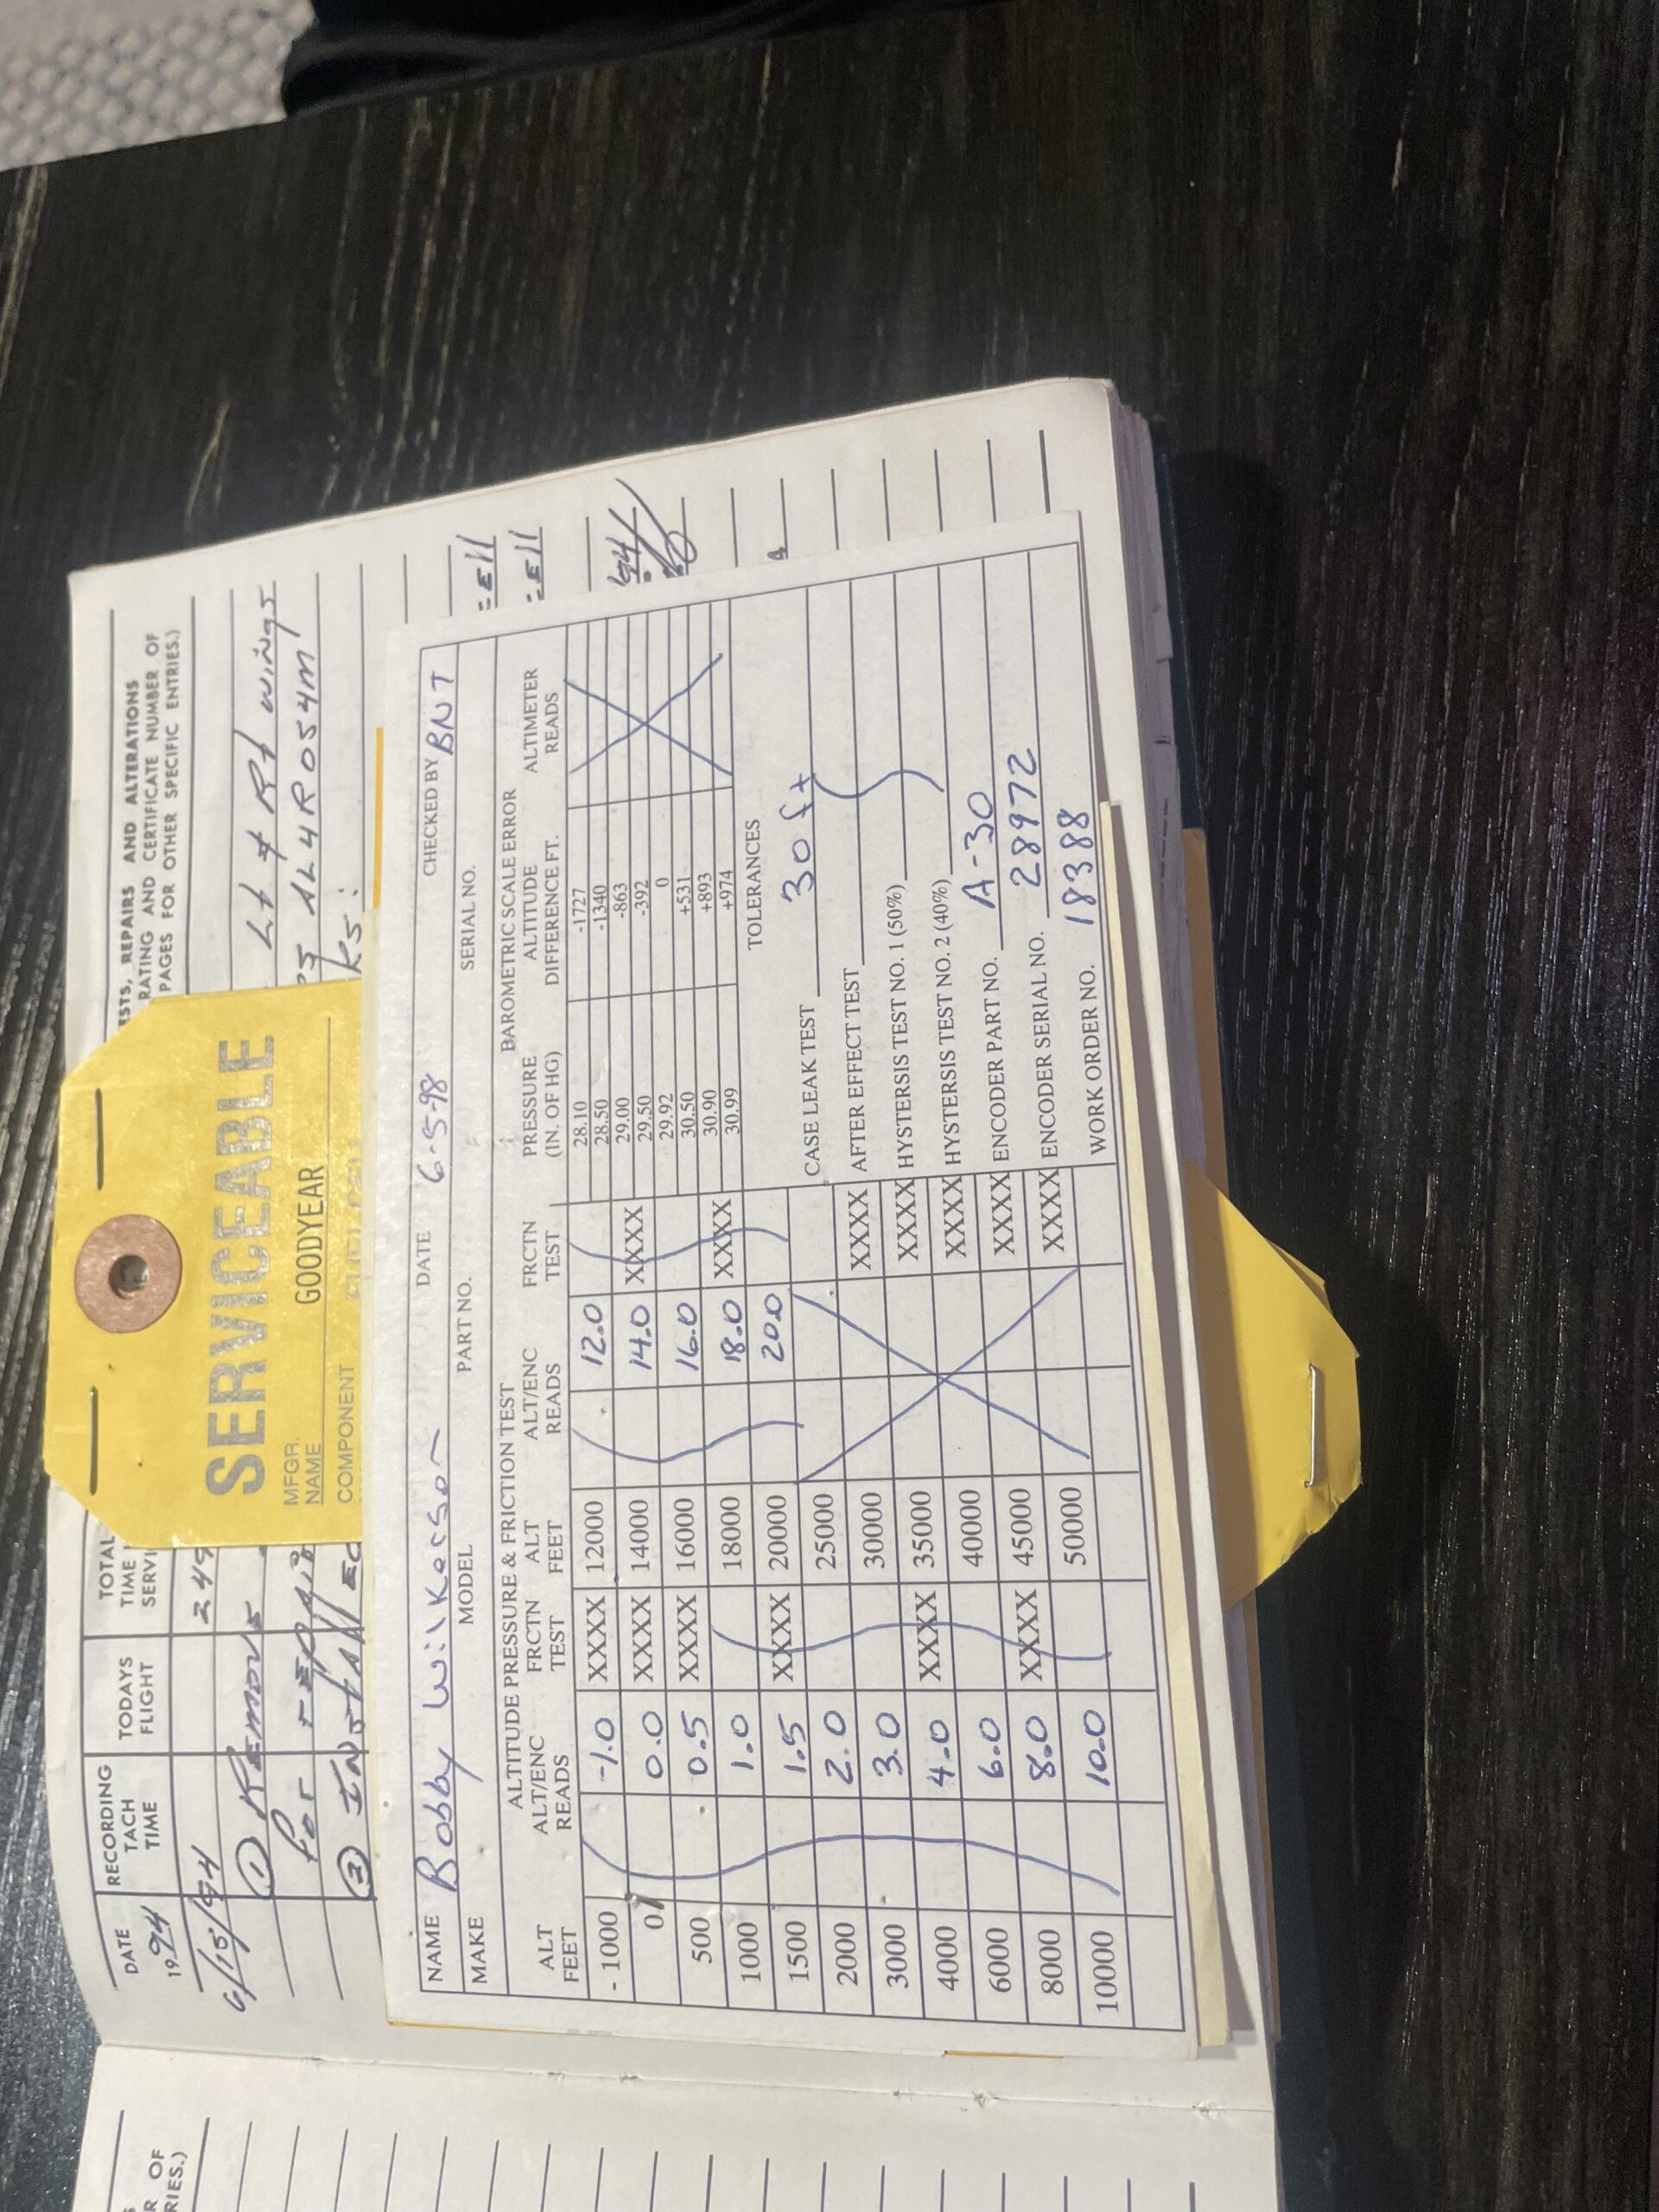 DATE
19 94
RECORDING
TACH
TIME
TODAYS
FLIGHT
TOTAL
TIME
SERVI
ESTS, REPAIRS AND ALTERATIONS
RATING AND CERTIFICATE NUMBER OF
PAGES FOR OTHER SPECIFIC ENTRIES.)
6/15/94
249
① Removed
Lt & Rt wings
for repair
AL4R054M
② Install
ks:
SERVICEABLE
MFGR.
NAME GOODYEAR
COMPONENT
NAME Bobby Wilkerson DATE 6-5-98 CHECKED BY BNT
MAKE MODEL PART NO. SERIAL NO.
ALTITUDE PRESSURE & FRICTION TEST BAROMETRIC SCALE ERROR
ALT FEET ALT/ENC READS FRCTN TEST ALT FEET ALT/ENC READS FRCTN TEST PRESSURE (IN. OF HG) ALTITUDE DIFFERENCE FT. ALTIMETER READS
-1000 -1.0 XXXX 12000 12.0
0 0.0 XXXX 14000 14.0 XXXX
500 0.5 XXXX 16000 16.0
1000 1.0 18000 18.0 XXXX
1500 1.5 XXXX 20000 20.0
2000 2.0 25000
3000 3.0 30000 XXXX
4000 4.0 XXXX 35000 XXXX
6000 6.0 40000 XXXX
8000 8.0 XXXX 45000 XXXX
10000 10.0 50000 XXXX
28.10 -1727
28.50 -1340
29.00 -863
29.50 -392
29.92 0
30.50 +531
30.90 +893
30.99 +974
TOLERANCES
CASE LEAK TEST 30 ft
AFTER EFFECT TEST
HYSTERSIS TEST NO. 1 (50%)
HYSTERSIS TEST NO. 2 (40%)
ENCODER PART NO. A-30
ENCODER SERIAL NO. 28972
WORK ORDER NO. 18388
OF
RIES.)